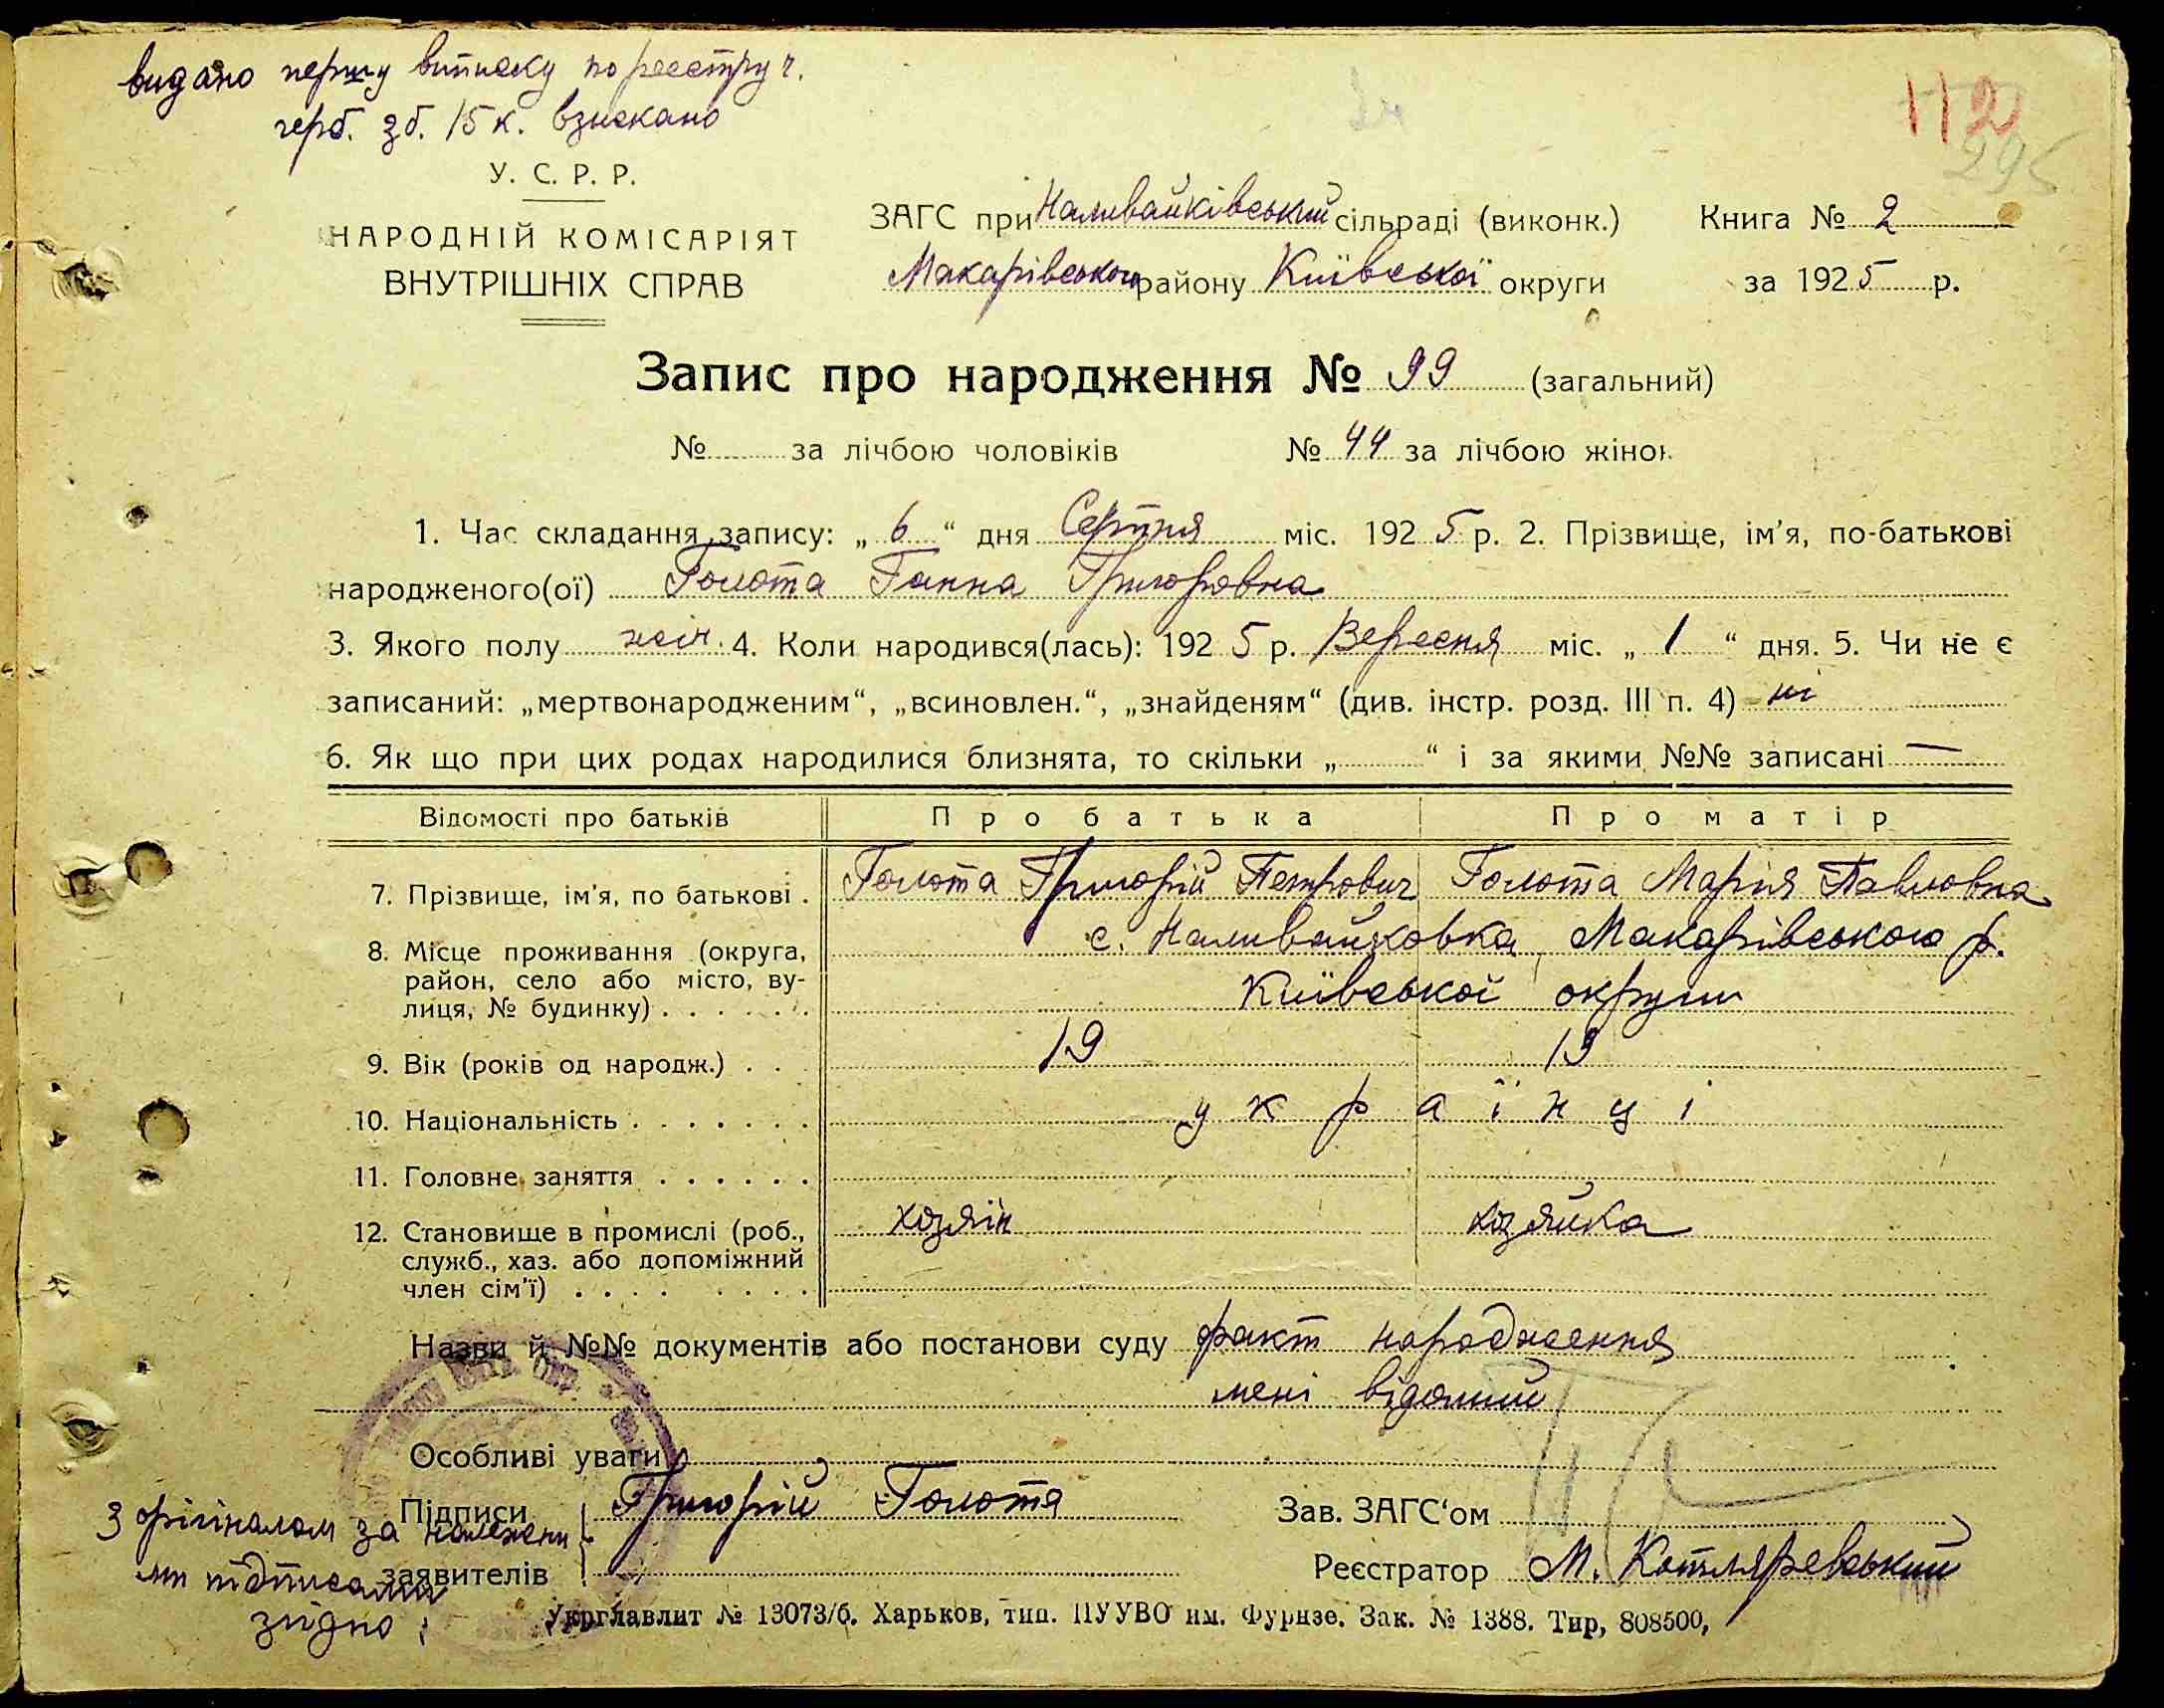 видано першу виписку по реєстру ч.
герб. зб. 15 к. взискано
112
295
У. С. Р. Р.
НАРОДНІЙ КОМІСАРІЯТ
ВНУТРІШНІХ СПРАВ
ЗАГС при Наливайківський сільраді (виконк.) Книга № 2
Макарівського району Київської округи за 1925 р.
Запис про народження № 99 (загальний)
№ за лічбою чоловіків № 44 за лічбою жінок
1. Час складання запису: „ 6 “ дня Серпня міс. 1925 р. 2. Прізвище, ім’я, по-батькові
народженого(ої) Голота Ганна Григоровна
3. Якого полу жін. 4. Коли народився(лась): 1925 р. Вересня міс. „ 1 “ дня. 5. Чи не є
записаний: „мертвонародженим“, „всиновлен.“, „знайденям“ (див. інстр. розд. III п. 4) ні
6. Як що при цих родах народилися близнята, то скільки „ “ і за якими №№ записані —
Відомості про батьків Про батька Про матір
7. Прізвище, ім’я, по батькові . Голота Григорій Петрович Голота Марія Павловна
8. Місце проживання (округа, с. Наливайковка Макарівського р.
район, село або місто, ву-
лиця, № будинку) . . . . . . Київської округи
9. Вік (років од народж.) . . . 19 19
10. Національність . . . . . . . українці
11. Головне заняття . . . . . .
12. Становище в промислі (роб., хозяїн хозяйка
служб., хаз. або допоміжний
член сім’ї) . . . . . . . .
Назви й №№ документів або постанови суду факт народження
мені відомий
Особливі уваги
Підписи Григорій Голота Зав. ЗАГС‘ом
заявителів Реєстратор М. Котляревський
З орігіналом за належни
ми підписами
згідно:
Укрглавлит № 13073/б. Харьков, тип. ПУУВО им. Фурнзе. Зак. № 1388. Тир, 808500,